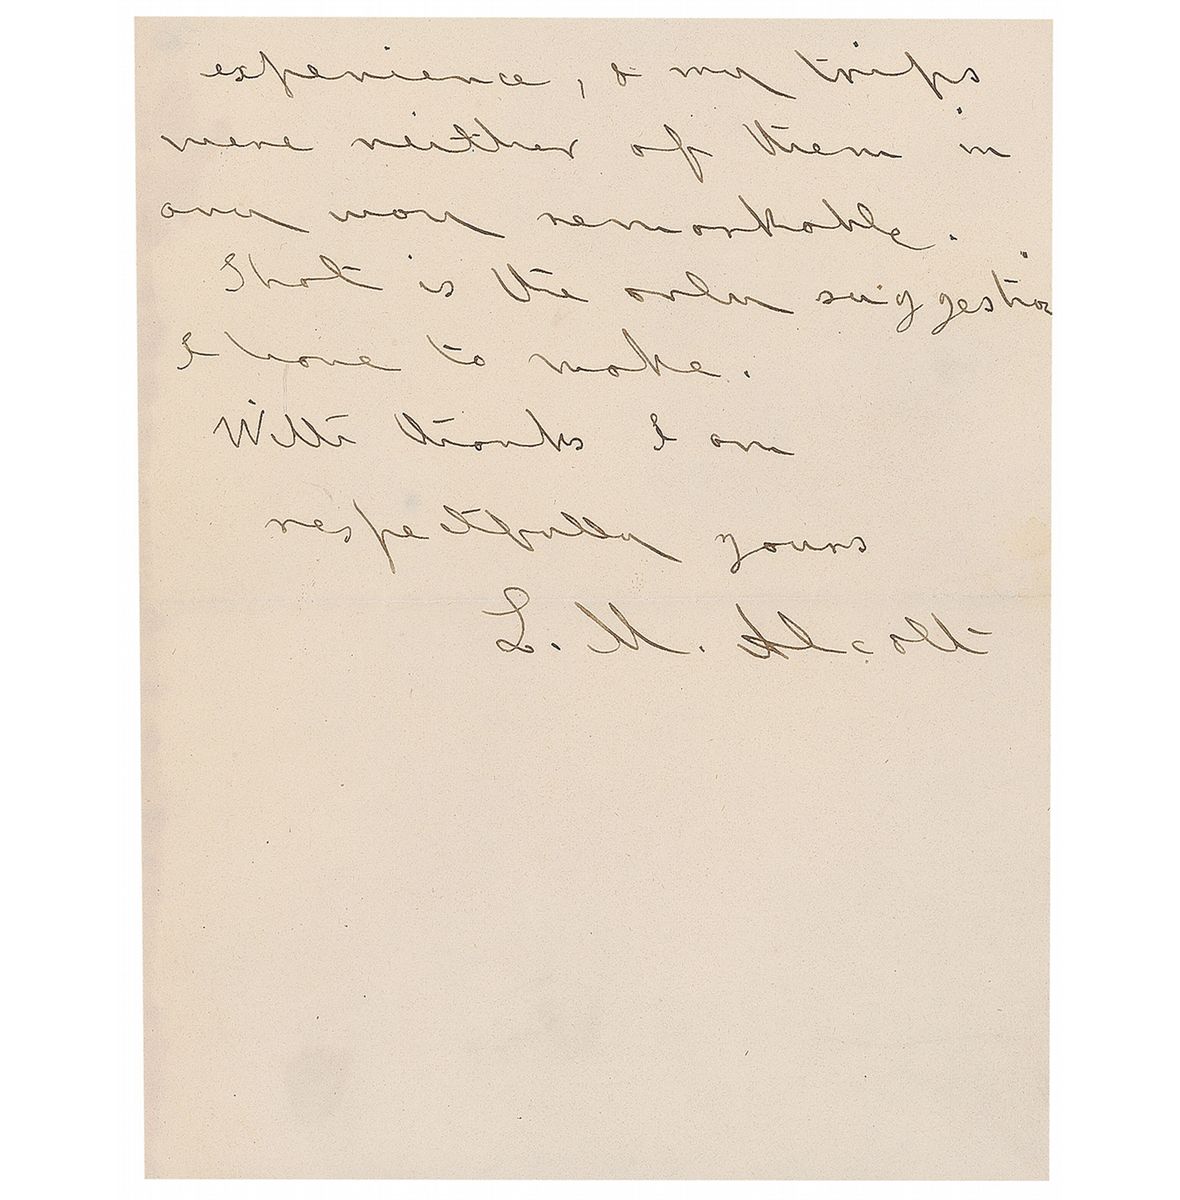 experience, & my trips
were neither of them in
any way remarkable.
That is the only suggestion
I have to make.
With thanks I am
respectfully yours
L. M. Alcott